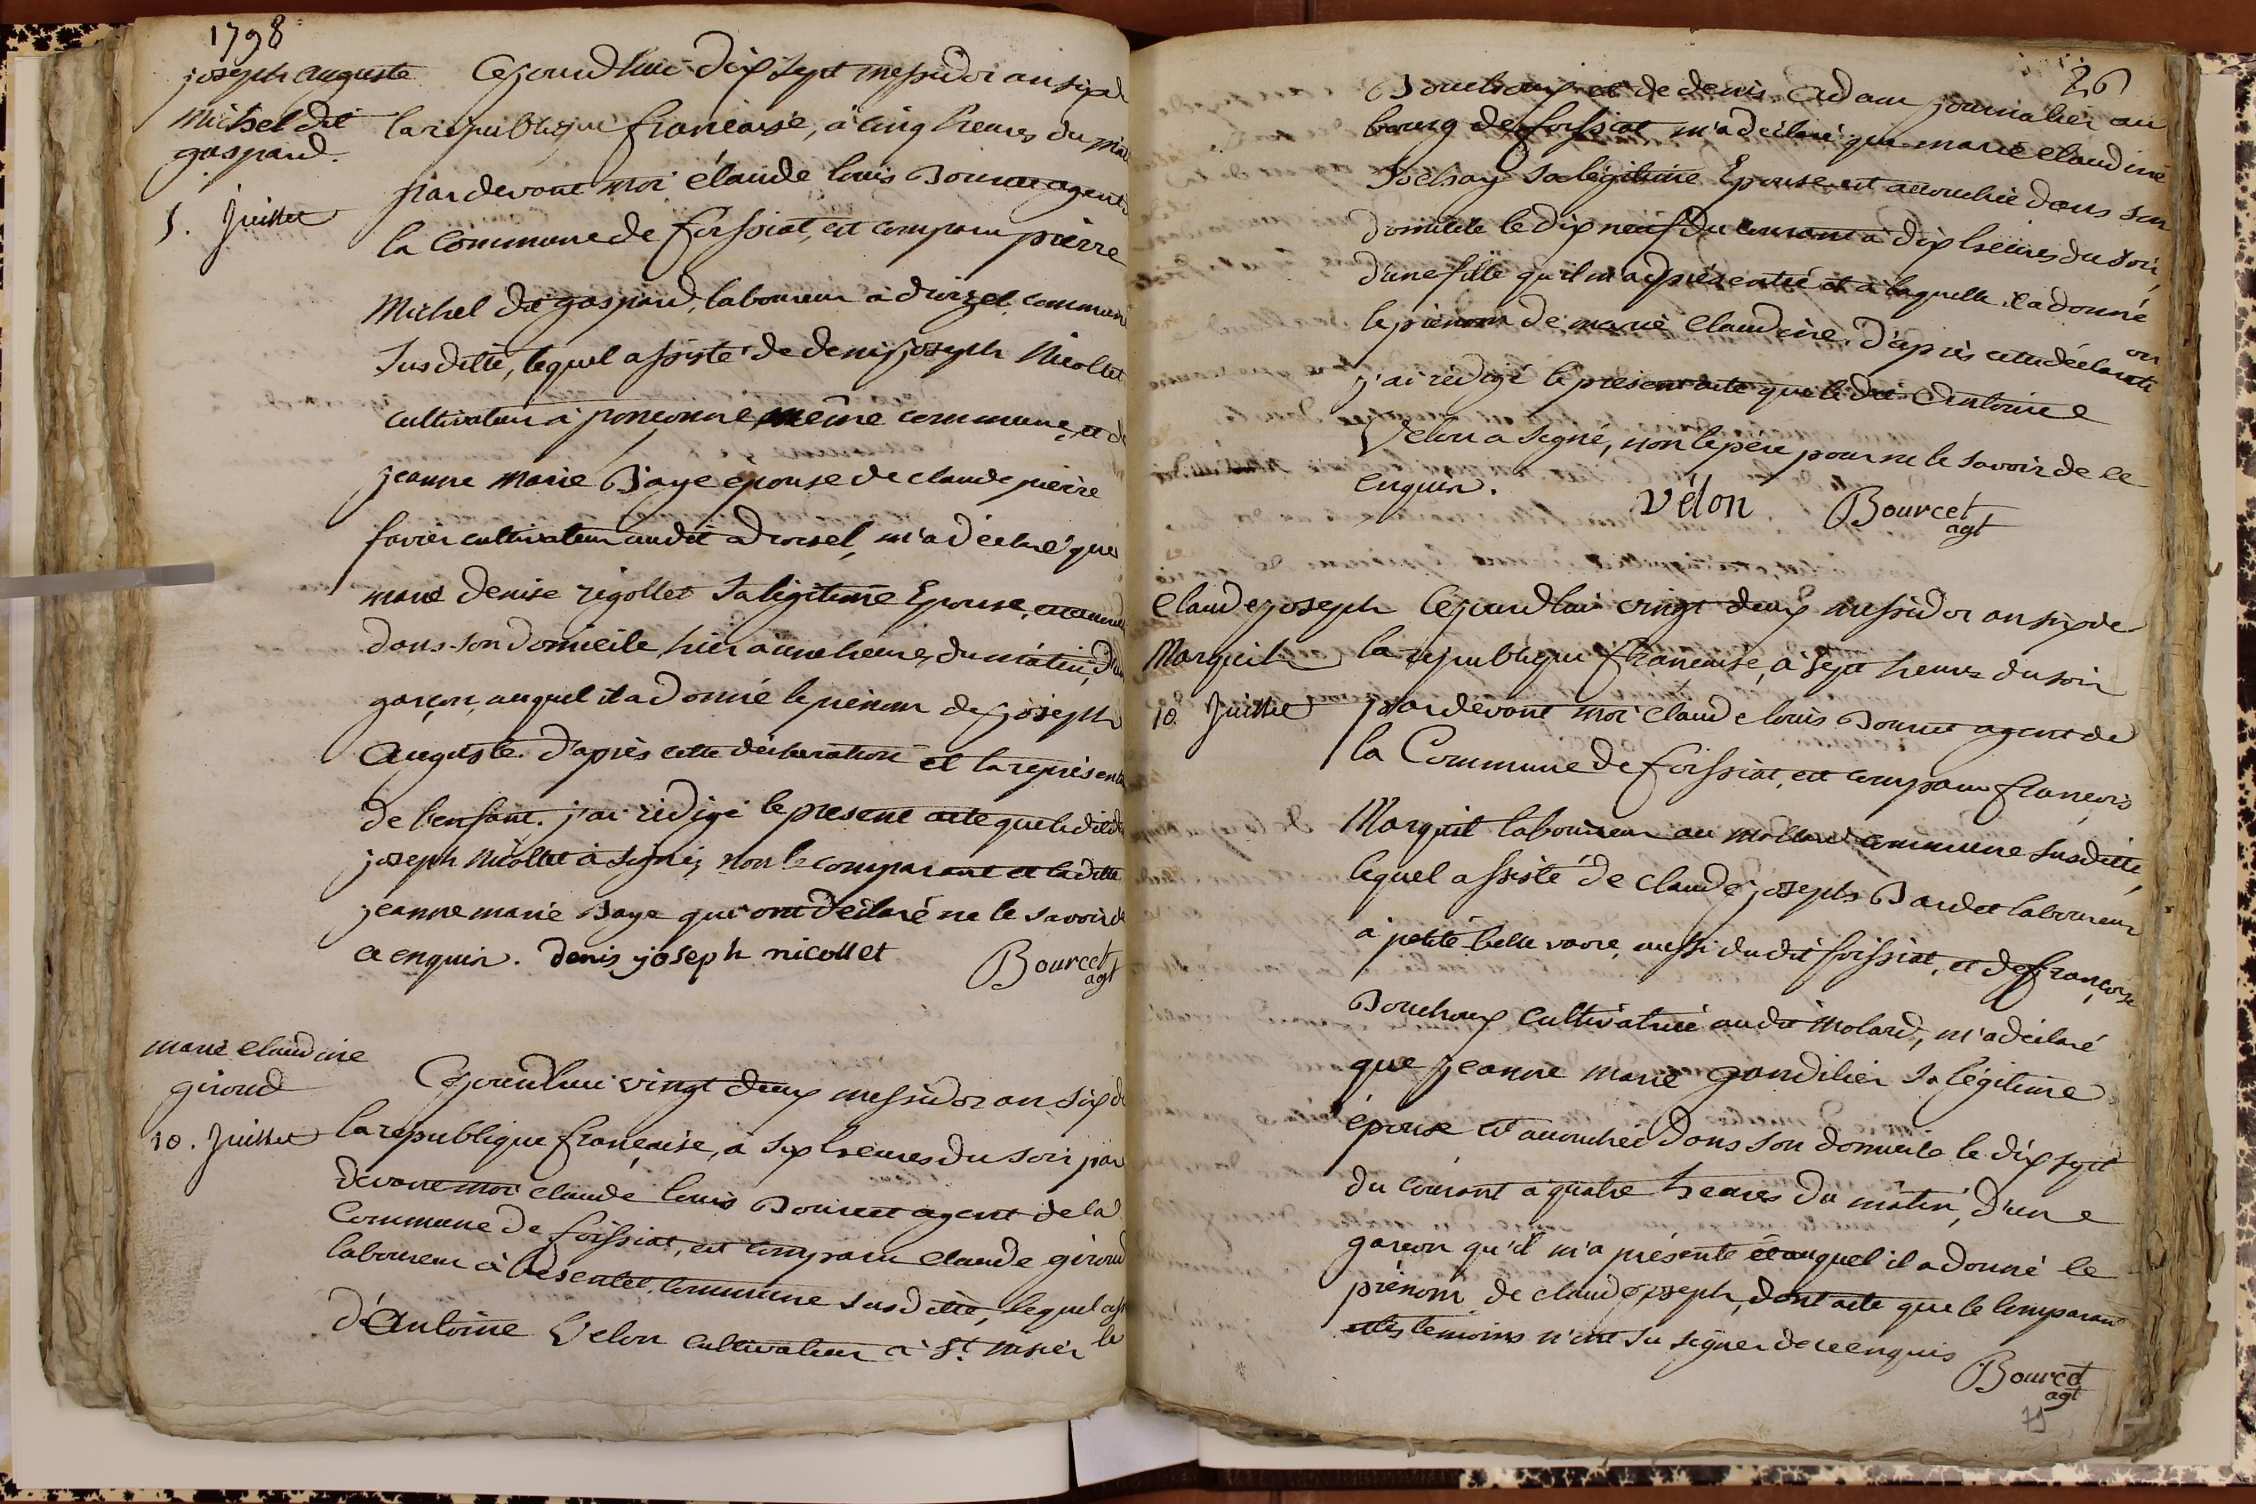 1798
joseph auguste
Michel dit
gaspard.
5. Juillet
Cejourdhui dix sept messidor an six de
la république francaise, à cinq heures du mat
pardevant moi claude louis Bourcet agent d
la Commune de foissiat, est comparu pierre
Michel dit gaspard, laboureur à commune
Susditte, lequel assisté de denis joseph Nicollet
cultivateur à ponconne même commune, et d
jeanne marie Baye epouse de claude pierre
favier cultivateur audit m'a déclaré que
marie denise rigollet Sa légitime Epouse,
dans son domicile, hier a une heure du matin, d'un
garçon, auquel il a donné le prénom de joseph
Auguste. D'après cette déclaration et la représenta
de l'enfant. j'ai rédigé le present acte que ledit d
joseph Nicollet à signé, non le comparant et laditte
jeanne marie Baye qui ont déclaré ne le savoir de
ce enquis. denis joseph nicollet
Bourcet
agt
marie claudine
giroud
10. Juillet
Cejourdhui vingt deux messidor an six de
la république francaise, à six heures du soir par
devant moi claude louis Bourcet agent de la
Commune de foissiat, est comparu claude giroud
laboureur à commune susditte, lequel ass
d'Antoine Velon cultivateur à St. nisier le
26
Bouchoux et de denis Cadam journalier au
bourg de foissiat m'a déclaré que marie claudine
Sa légitime Epouse est accouchée dans son
domicile le dix neuf du courant à dix heures du soir,
d'une fille qu'il m'a présenté et à laquelle il a donné
le prénom de marie claudine. D'après cette déclarati
on
j'ai rédigé le present acte que le dit Antoine
Velon a signé, non le père pour ne le savoir de ce
enquis.
vélon
Bourcet
agt
Claude joseph
Marguit
10 Juillet
Cejourdhui vingt deux messidor an six de
la république francaise, à sept heures du soir
pardevant moi claude louis Bourcet agent de
la Commune de foissiat, est comparu francois
Marguit laboureur au molard commune susditte,
lequel assisté de claude joseph Bardet laboureur
à petite belle vavre, aussi du dit foissiat, et de francoise
Bouchoux cultivatrice audit Molard, m'a déclaré
que jeanne marie gandilier Sa légitime
épouse est accouchée dans son domicile le dix sept
du courant à quatre heures du mâtin, d'un
garcon qu'il m'a présenté et auquel il a donné le
prénom de claude joseph, dont acte que le comparant
et les temoins n'ont su signer de ce enquis
Bourcet
agt